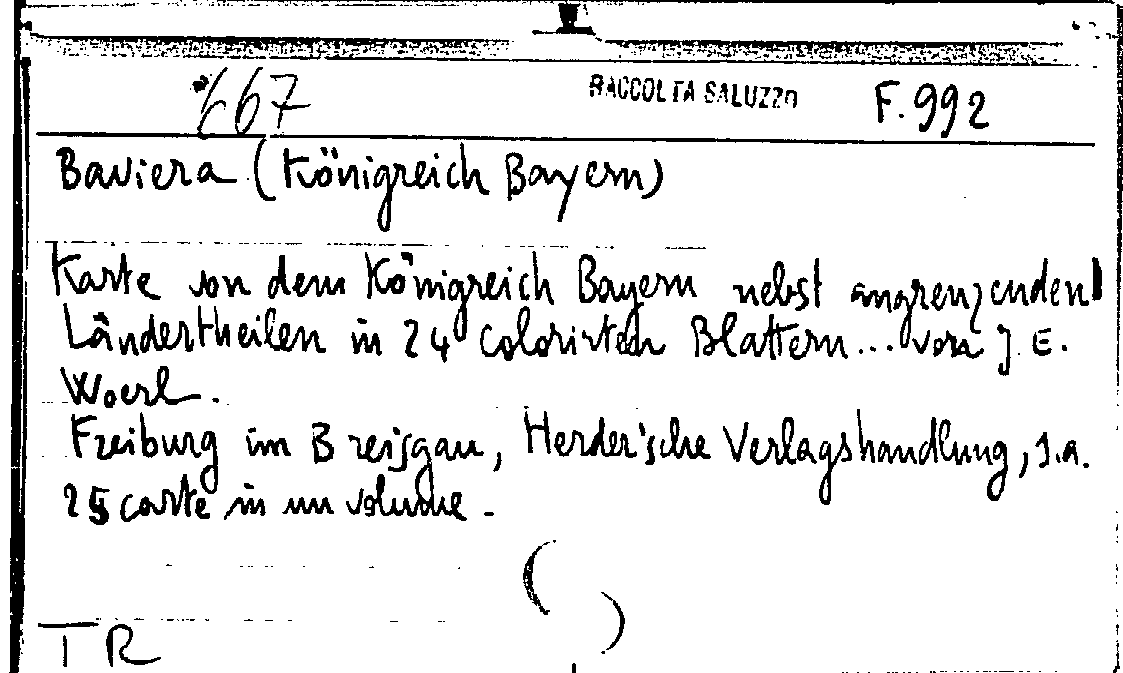 667 RACCOLTA SALUZZO F.992
Baviera (Königreich Bayern)
Karte von dem Königreich Bayern nebst angrenzenden
Ländertheilen in 24 colorirten Blattern... von J. E.
Woerl.
Freiburg im Breisgau, Herder'sche Verlagshandlung, s.a.
25 carte in un volume.
TR